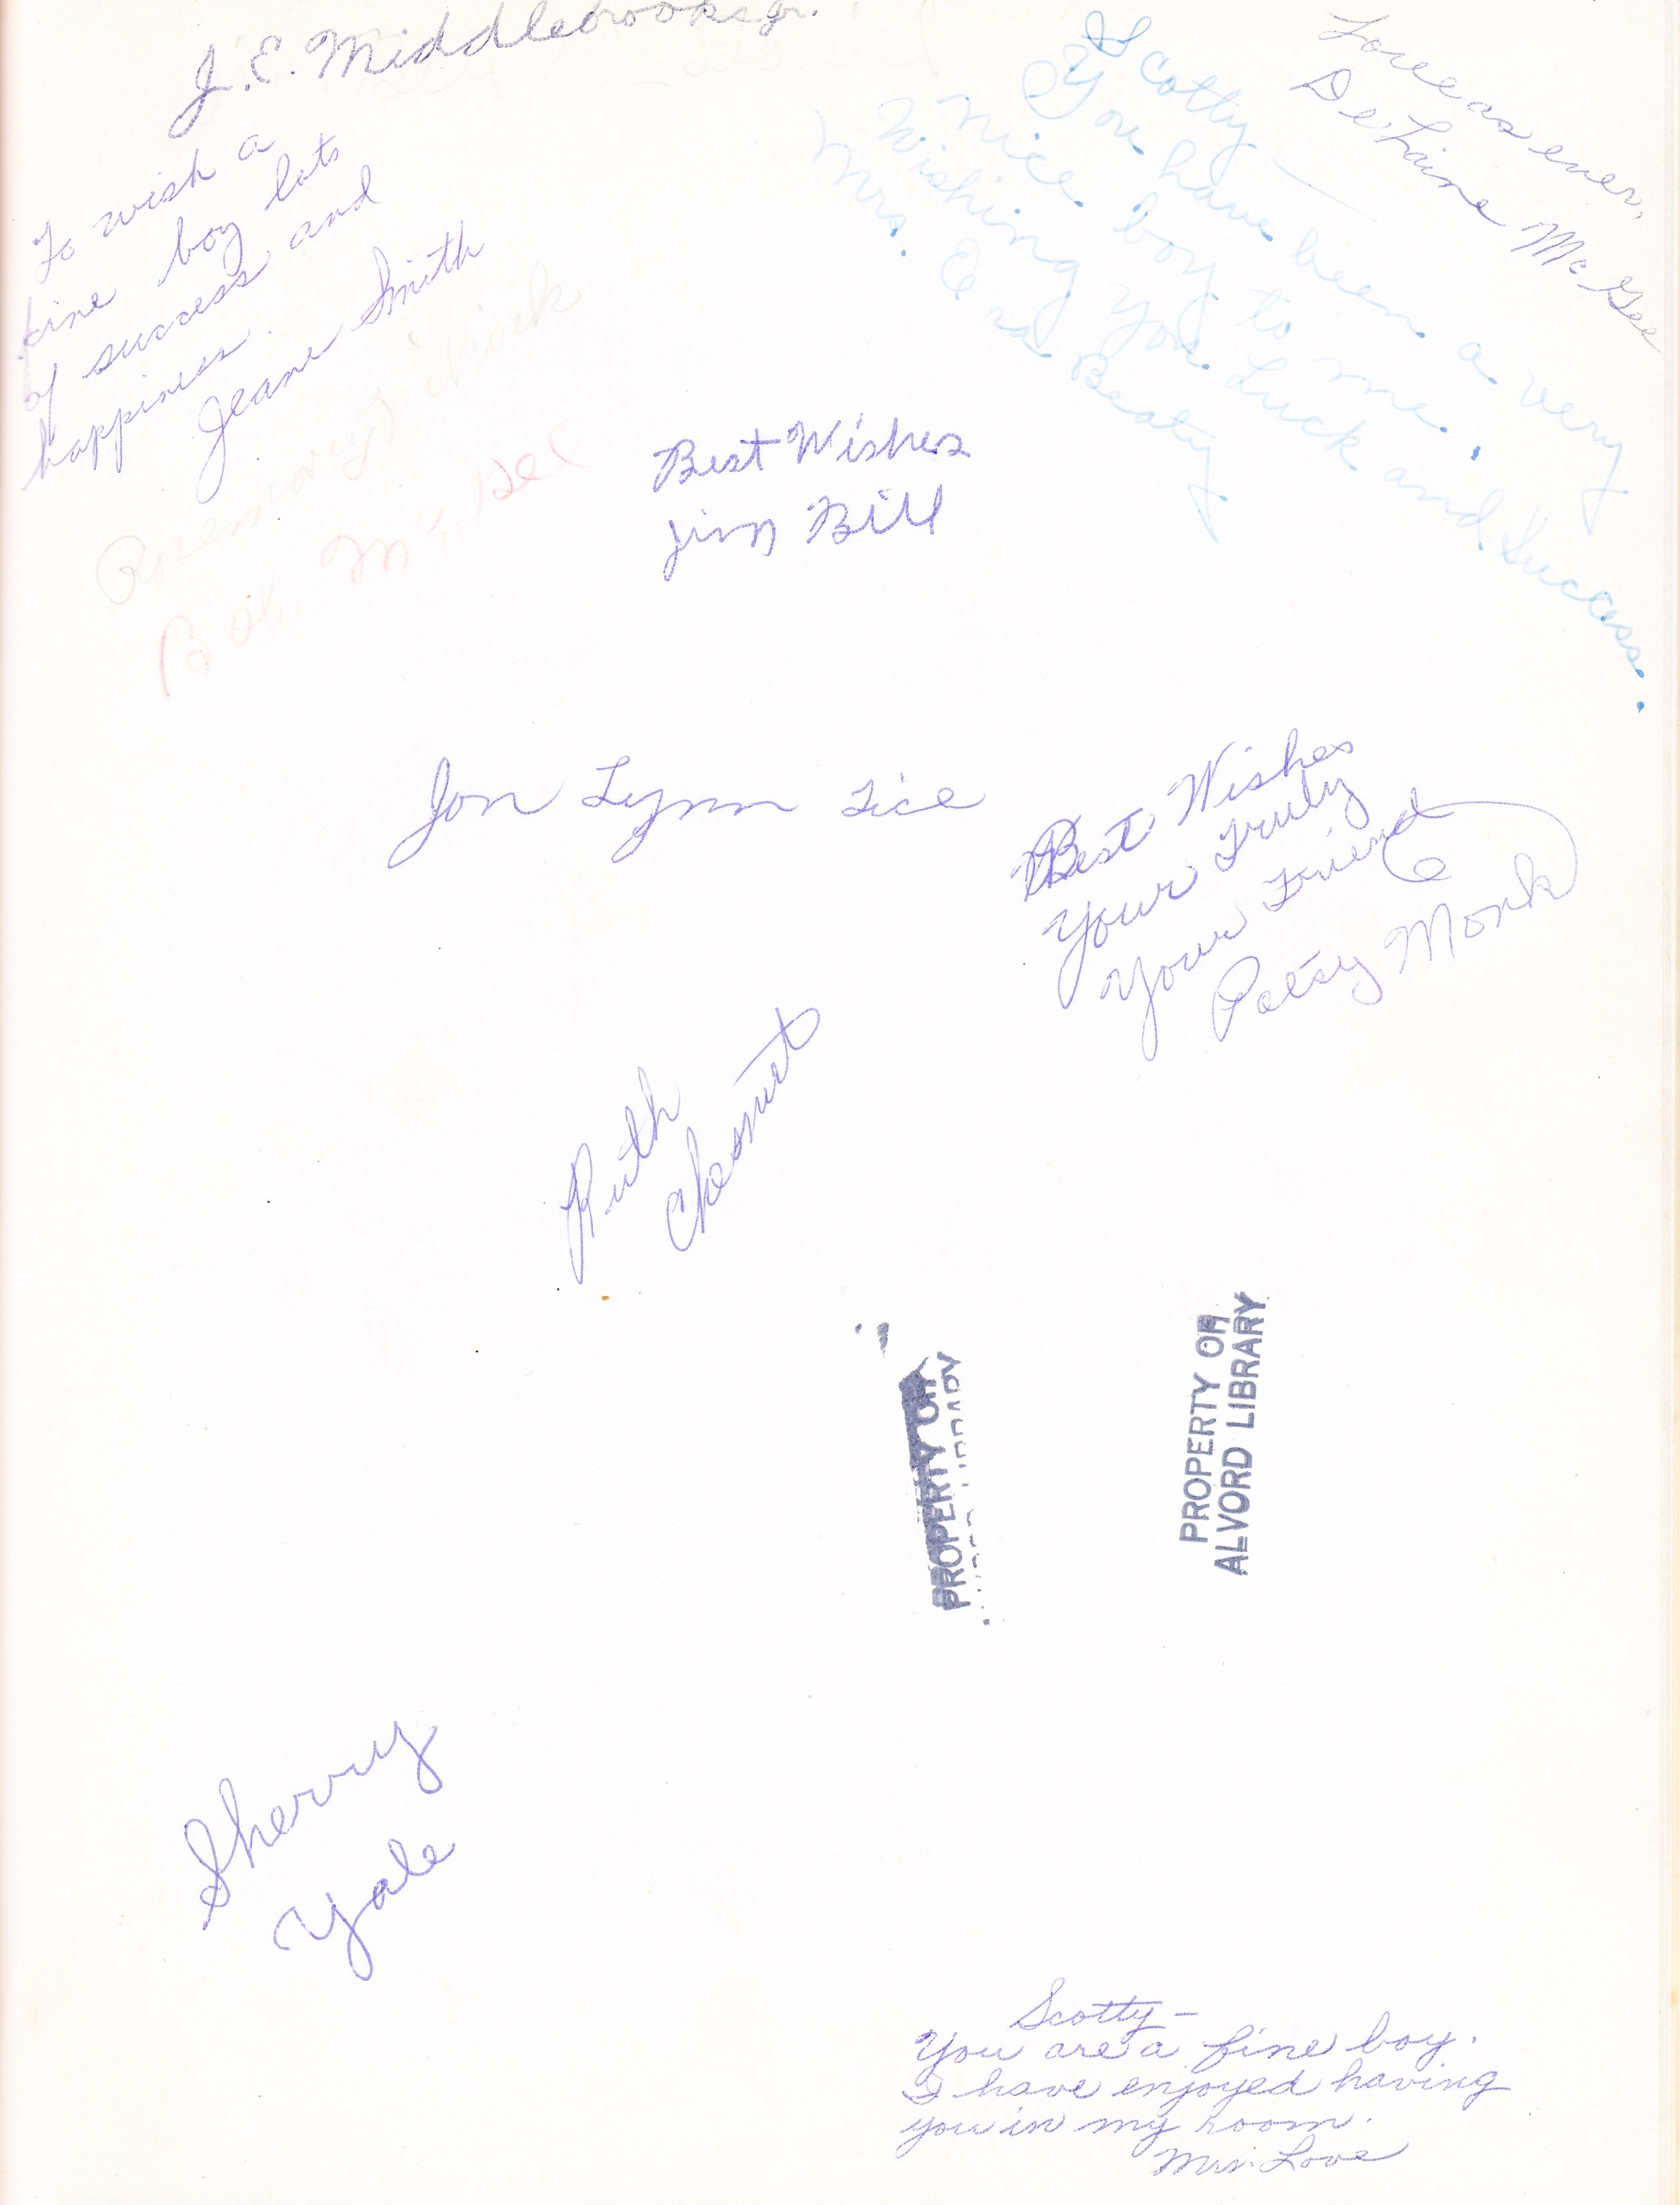 J.E. Middlebrooks Jr.
To wish a
fine boy lots
of success and
happiness.
Jeane Smith
Scotty —
You have been a very
nice boy to me.
Wishing you Luck and Success.
Mrs. Era Beaty
Love as ever,
De Laine McGee
Rosemary
Bob
Best Wishes
Jim Bill
Jon Lynn Tice
Best Wishes
Your Truly
Your Friend
Patsy Monk
Ruth
Chesnut
PROPERTY OF
PROPERTY OF
ALVORD LIBRARY
Sherry
Yale
Scotty —
You are a fine boy.
I have enjoyed having
you in my room.
Mrs. Love